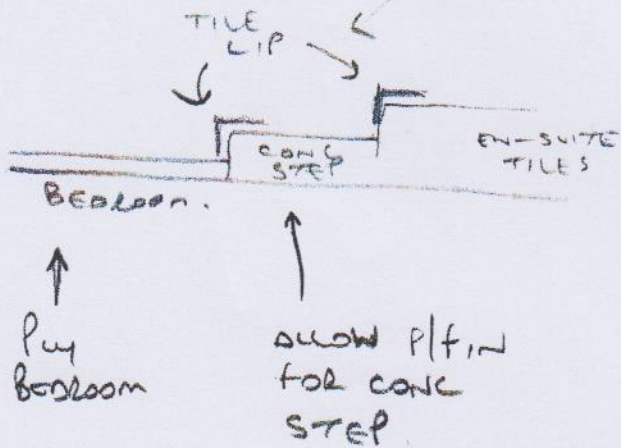 TILE
LIP
CONC
STEP
EN-SUITE
TILES
BEDROOM.
Ply
BEDROOM
ALLOW P/F IN
FOR CONC
STEP